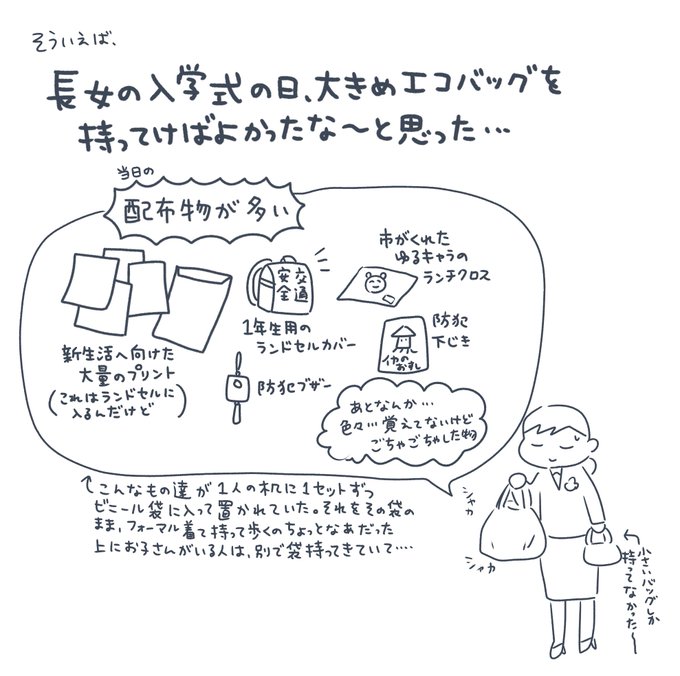 そういえば、
長女の入学式の日、大きめエコバッグを
持ってけばよかったな〜と思った…
当日の
配布物が多い
新生活へ向けた
大量のプリント
(これはランドセルに
入るんだけど)
交通
安全
1年生用の
ランドセルカバー
市がくれた
ゆるキャラの
ランチクロス
防犯ブザー
イカの
おすし
防犯
下じき
あとなんか…
色々…覚えてないけど
ごちゃごちゃした物
↑こんなもの達が1人の机に1セットずつ
ビニール袋に入って置かれていた。それをその袋の
まま、フォーマル着て持って歩くのちょっとなあだった
上にお子さんがいる人は、別で袋持ってきていて....
シャカ
シャカ
←小さいバッグしか
持ってなかった〜